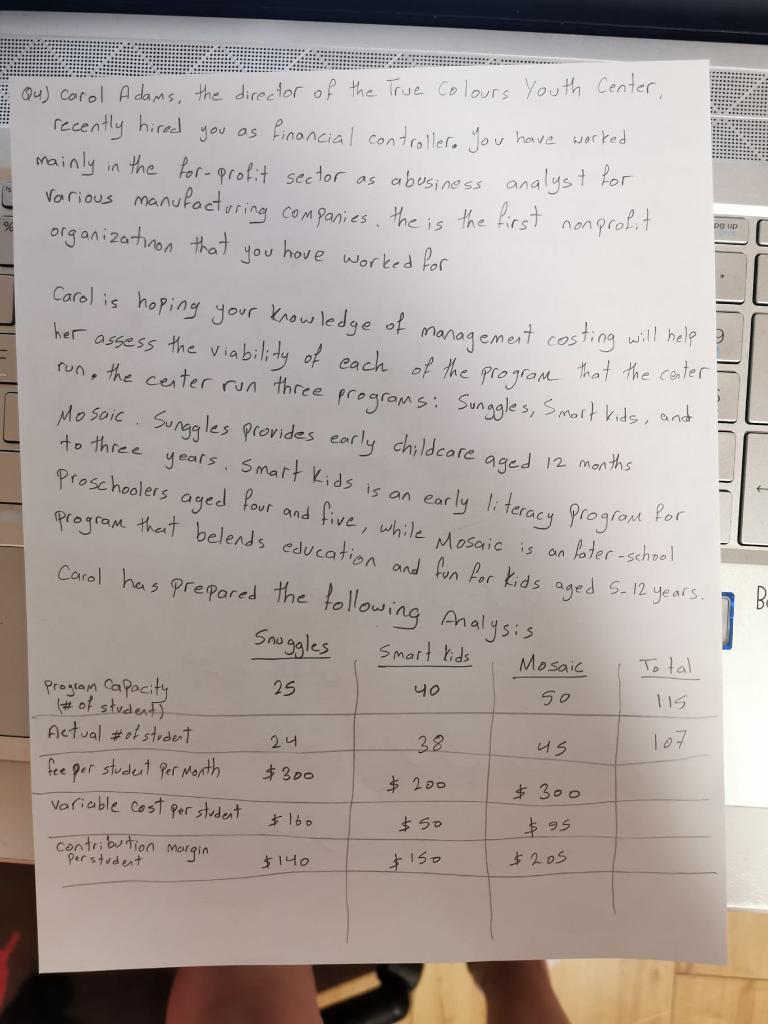 Q4) Carol Adams, the director of the True Colours Youth Center,
recently hired you as financial controller. You have worked
mainly in the for-profit sector as abusiness analyst for
various manufacturing companies. the is the first nonprofit
organizatinon that you have worked for
Carol is hoping your knowledge of management costing will help
her assess the viability of each of the program that the center
run. the center run three programs: Sunggles, Smart kids, and
Mosaic. Sunggles provides early childcare aged 12 months
to three years. Smart Kids is an early literacy program for
Proschoolers aged four and five, while Mosaic is an fater-school
program that belends education and fun for kids aged 5-12 years.
Carol has prepared the following Analysis
Snuggles Smart kids Mosaic Total
Program Capacity 25 40 50 115
(# of student)
Actual # of student 24 38 45 107
fee per student per Month $300 $200 $300
variable cost per student $160 $50 $95
contribution margin $140 $150 $205
per student
pg up